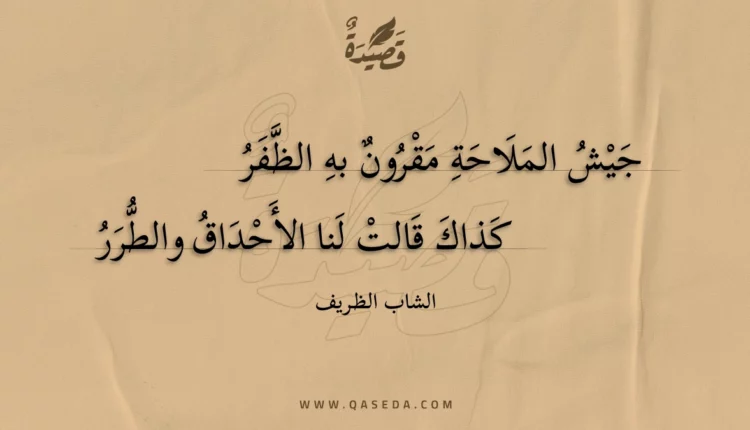 قَصِيدَةٌ
جَيْشُ المَلَاحَةِ مَقْرُونٌ بهِ الظَّفَرُ
كَذاكَ قَالتْ لَنا الأَحْدَاقُ والطُّرَرُ
الشاب الظريف
WWW.QASEDA.COM